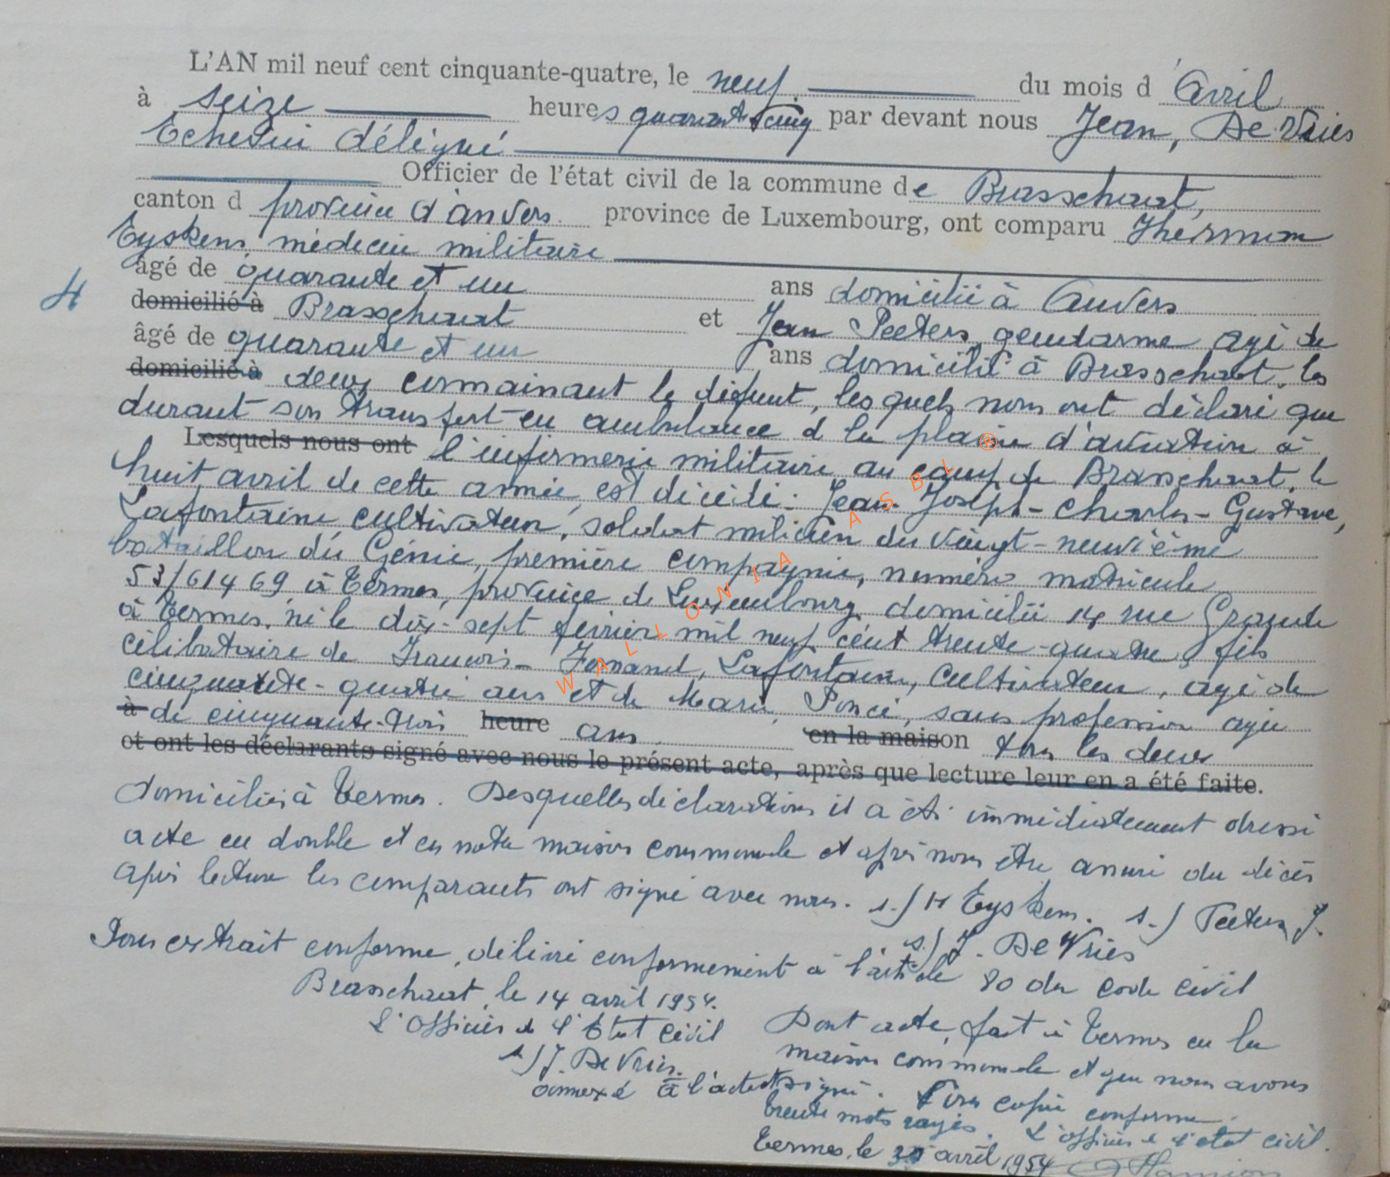 L'AN mil neuf cent cinquante-quatre, le neuf. du mois d'Avril
à seize heures quarante cinq par devant nous Jean, De Vries
Echevin délégué
Officier de l'état civil de la commune de Brasschaat,
canton d province d'Anvers. province de Luxembourg, ont comparu Herman
Eyskens, médecin militaire
âgé de quarante et un ans domicilié à Anvers
4 domicilié à Brasschaat et Jean Peeters, gendarme agé de
âgé de quarante et un ans domicilié à Brasschaat, les
domicilié à deux connainant le défunt, lesquels nous ont déclaré que
durant son transfert en ambulance d la plaine d'aviation à
Lesquels nous ont l'infirmerie militaire au camp de Brasschaat, le
huit avril de cette année, est décédé: Jean-Joseph-Charles-Gustave,
Lafontaine, cultivateur, soldat milicien du vingt-neuvième
bataillon du Génie, première compagnie, numéro matricule
53/61469 à Termes, province de Luxembourg domicilié 14 rue Grande
à Termes, né le dix-sept février mil neuf cent trente-quatre, fils
célibataire de François-Fernand, Lafontaine, cultivateur, agé de
cinquante-quatre ans et de Marie, Poncé, sans profession agée
à de cinquante-trois heure ans en la maison tous les deux
et ont les déclarants signé avec nous le présent acte, après que lecture leur en a été faite.
domiciliés à Termes. Desquelles déclarations il a été immédiatement dressé
acte en double et en notre maison communale et après nous être assuré du décès
après lecture les comparants ont signé avec nous. s./ H Eyskens. s./ Peeters J.
s./ J. De Vries
Pour extrait conforme, délivré conformément à l'article 80 du code civil
Brasschaat, le 14 avril 1954.
L'Officier de l'Etat Civil
s/J. De Vries.
annexé à l'acte et signé.
Dont acte, fait à Termes en la
maison communale et que nous avons
Pour copie conforme.
trente mots rayés. L'officier de l'état civil.
Termes, le avril 1954
WALLONIA ASBL ®